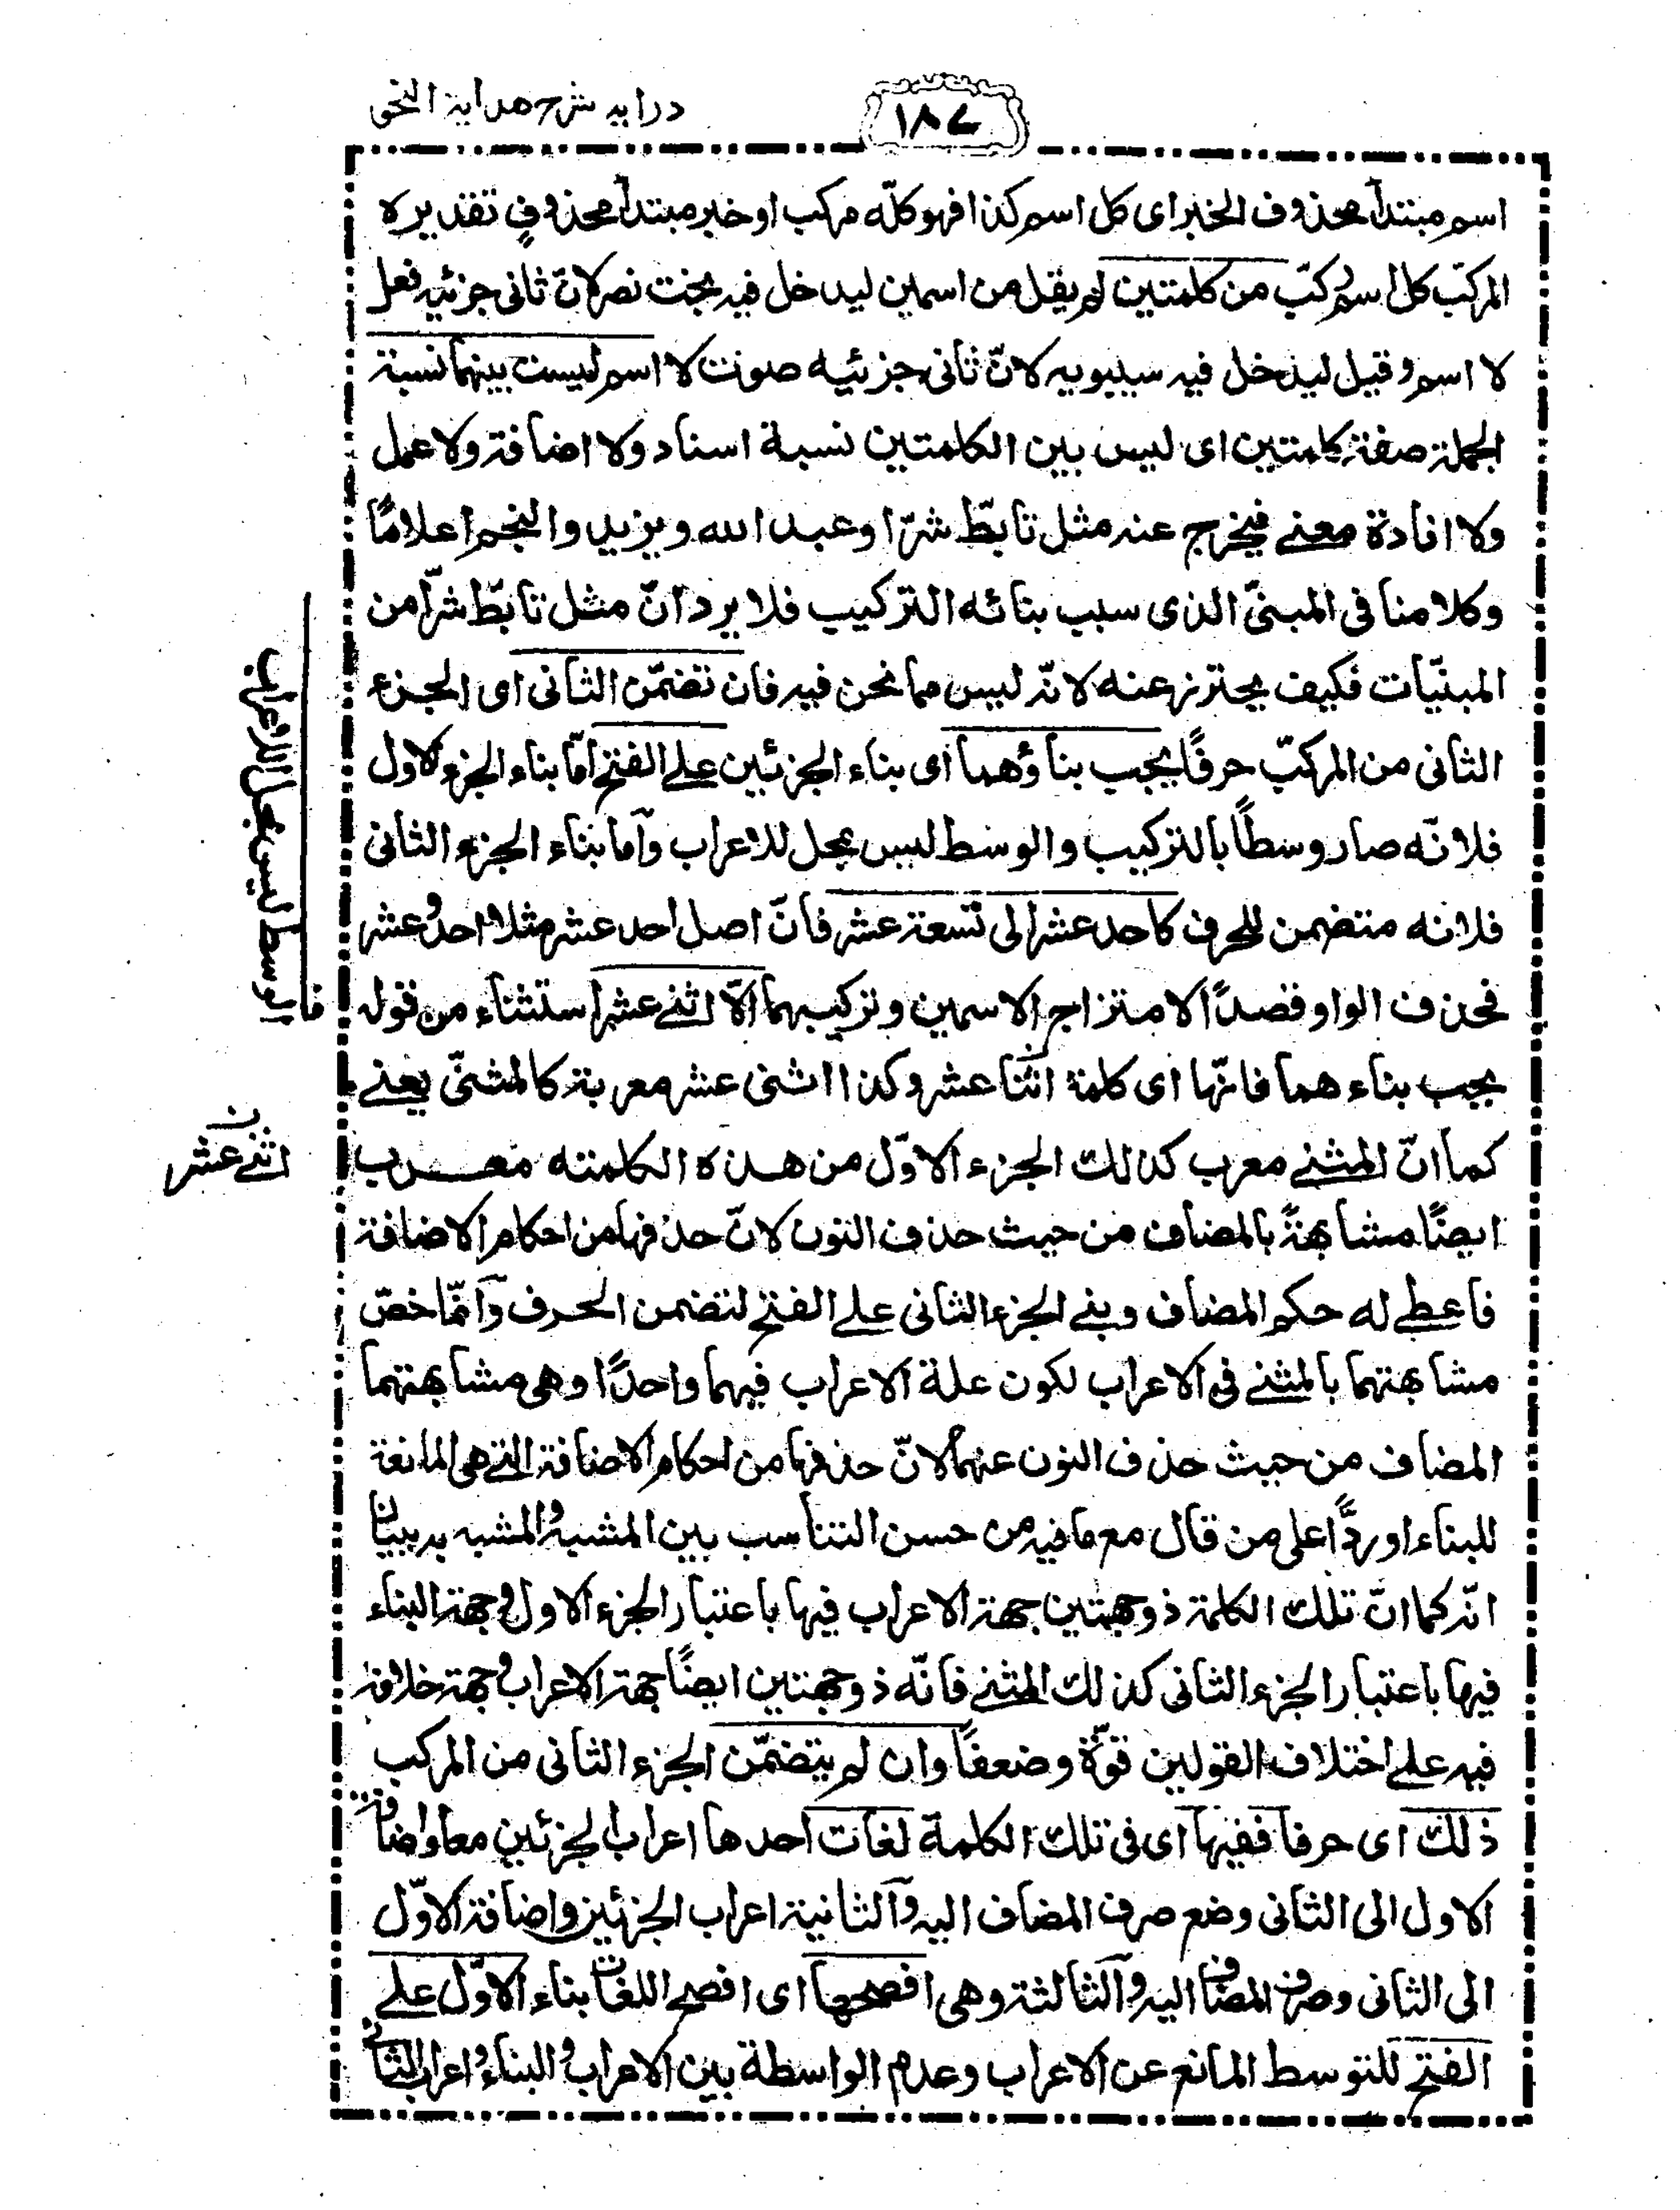 درايه شرح هداية النحو
١٨٧
اسم مبتدأ محذوف الخبر اى كل اسم كذا فهو كلّه مركب او خبر مبتدأ محذوفٍ تقديره
المركبّ كل اسم ركبّ من كلمتين لم يقل من اسمين ليدخل فيه بخت نصر لانّ ثانى جزئيه فعل
لا اسم وقيل ليدخل فيه سيبويه لانّ ثانى جزئيه صوت لا اسم ليست بينهما نسبة
الجملة صفة كلمتين اى ليس بين الكلمتين نسبة اسناد ولا اضافة ولا عمل
ولا افادة معنے فيخرج عنه مثل تابّط شرّا وعبد الله ويزيد والنجم اعلامًا
وكلامنا فى المبنىّ الذى سبب بنائه التركيب فلا يرد انّ مثل تابّط شرّا من
المبنيّات فكيف يحترز عنه لانّه ليس مما نحن فيه فان تضمّن الثانى اى الجزء
الثانى من المركبّ حرفًا يجب بناؤهما اى بناء الجزئين علے الفتح امّا بناء الجزء الاول
فلانّه صار وسطًا بالتركيب والوسط ليس بمحل للاعراب وآما بناء الجزء الثانى
فلانه متضمن للحرف كاحد عشر الى تسعة عشر فانّ اصل احد عشر مثلا احد وعشر
فحذف الواو قصدًا لامتزاج الاسمين وتركيبهما الّا اثنے عشر استثناء من قوله
يجب بناء هما فانّها اى كلمة اثنا عشر وكذا اثنى عشر معربة كالمثنىّ يعنے
كما انّ المثنے معرب كذلك الجزء الاوّل من هذه الكلمته معرب
ايضًا مشابهةً بالمضاف من حيث حذف النون لانّ حذفها من احكام الاضافة
فاعطے له حكم المضاف وبنے الجزء الثانى علے الفتح لتضمن الحرف وآنمّا خصّ
مشابهتهما بالمثنے فى الاعراب لكون علة الاعراب فيهما واحدًا وهى مشابهتهما
المضاف من حيث حذف النون عنهما لانّ حذفها من احكام الاضافة التے هى المانعة
للبناء او ردًّا على من قال مع ما فيه من حسن التناسب بين المشبه والمشبه به ببيان
انّه كما انّ تلك الكلمة ذو جهتين جهة الاعراب فيها باعتبار الجزء الاول وجهة البناء
فيها باعتبار الجزء الثانى كذلك المثنے فانّه ذو جهتين ايضًا جهة الاعراب وجهة خلافه
فيه علے اختلاف القولين قوّة وضعفًا وان لم يتضمّن الجزء الثانى من المركب
ذلك اى حرفا ففيها اى فى تلك الكلمة لغات احدها اعراب الجزئين معا واضافة
الاول الى الثانى وضع صرف المضاف اليه وآلثانية اعراب الجزئين واضافة الاوّل
الى الثانى وصرف المضاف اليه وآلثالثة وهى افصحها اى افصح اللغات بناء الاوّل علے
الفتح للتوسط المانع عن الاعراب وعدم الواسطة بين الاعراب والبناء واعراب الثانى
ف الوسط ليس بمحل للاعراب
ن اثنے عشر